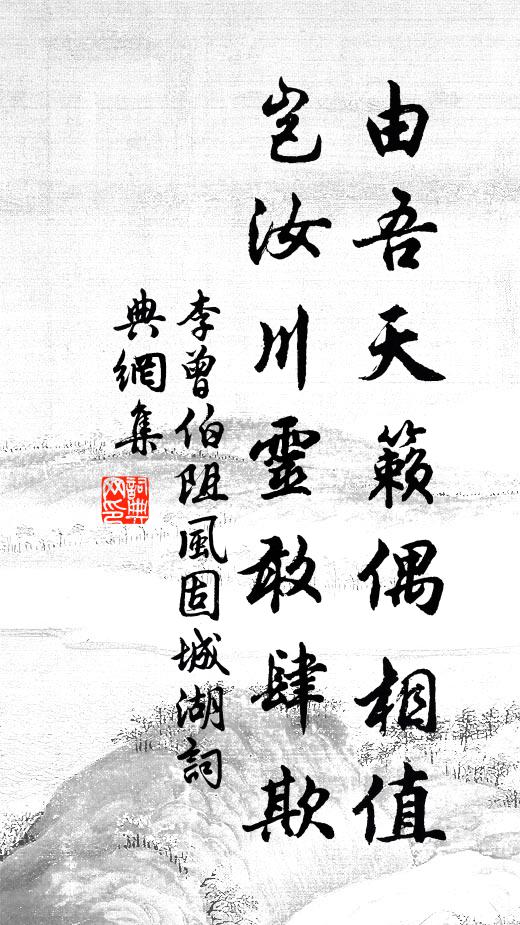 由吾天籟偶相值
豈汝川靈敢肆欺
李曾伯阻風固城湖詞
典網集
詞典网印